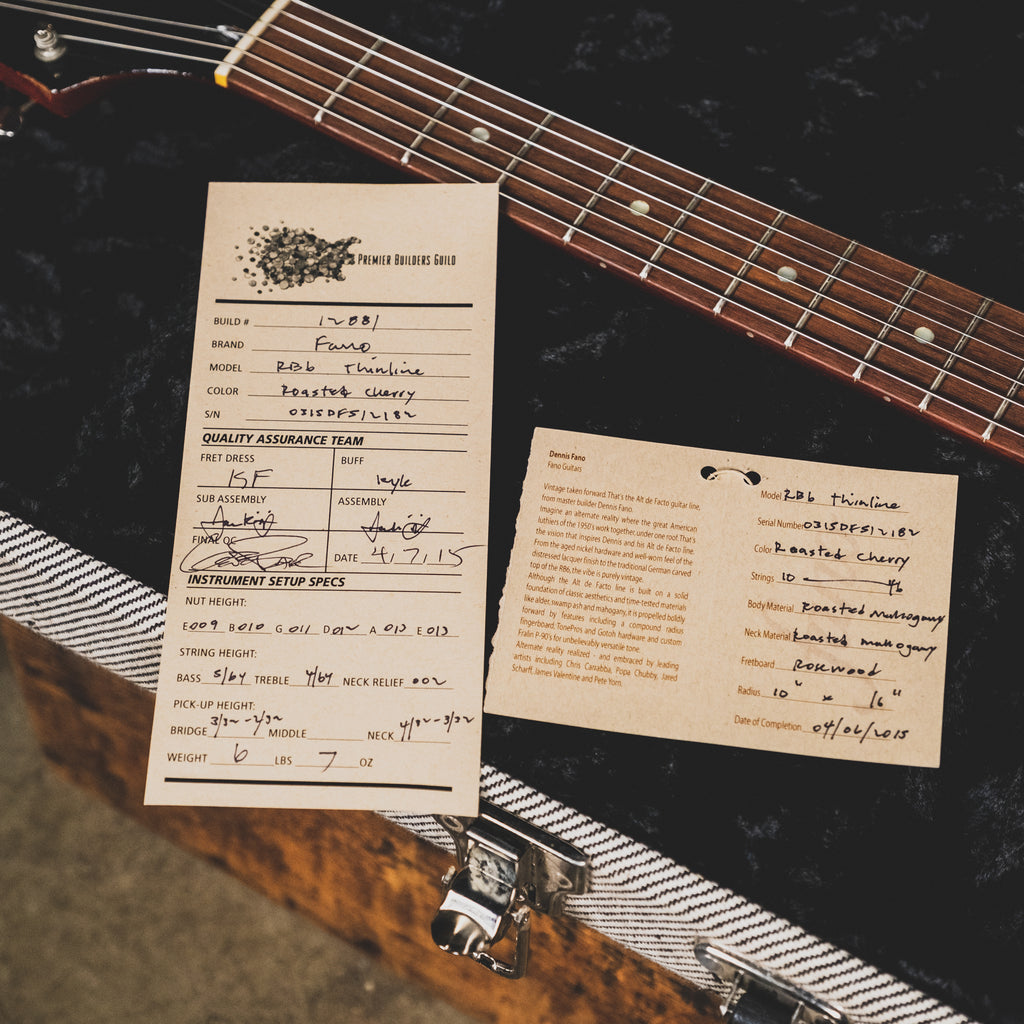 PREMIER BUILDERS GUILD
BUILD # 12881
BRAND Fano
MODEL RB6 Thinline
COLOR Roasted Cherry
S/N 0315DFS12182
QUALITY ASSURANCE TEAM
FRET DRESS BUFF
KF Kyle
SUB ASSEMBLY ASSEMBLY
FINAL QC DATE 4/7/15
INSTRUMENT SETUP SPECS
NUT HEIGHT:
E 009 B 010 G 011 D 012 A 013 E 013
STRING HEIGHT:
BASS 5/64 TREBLE 4/64 NECK RELIEF .002
PICK-UP HEIGHT:
BRIDGE 3/32-2/32 MIDDLE NECK 4/32-3/32
WEIGHT 6 LBS 7 OZ
Dennis Fano
Fano Guitars
Vintage taken forward. That's the Alt de Facto guitar line,
from master builder Dennis Fano.
Imagine an alternate reality where the great American
luthiers of the 1950's work together under one roof. That's
the vision that inspires Dennis and his Alt de Facto line.
From the aged nickel hardware and well-worn feel of the
distressed lacquer finish to the traditional German carved
top of the RB6, the vibe is purely vintage.
Although the Alt de Facto line is built on a solid
foundation of classic aesthetics and time-tested materials
like alder, swamp ash and mahogany, it is propelled boldly
forward by features including a compound radius
fingerboard, TonePros and Gotoh hardware and custom
Fralin P-90's for unbelievably versatile tone.
Alternate reality realized - and embraced by leading
artists including Chris Carrabba, Popa Chubby, Jared
Scharff, James Valentine and Pete Yorn.
Model RB6 Thinline
Serial Number 0315DFS12182
Color Roasted Cherry
Strings 10 — 46
Body Material Roasted Mahogany
Neck Material Roasted mahogany
Fretboard Rosewood
Radius 10" x 16"
Date of Completion 04/06/2015